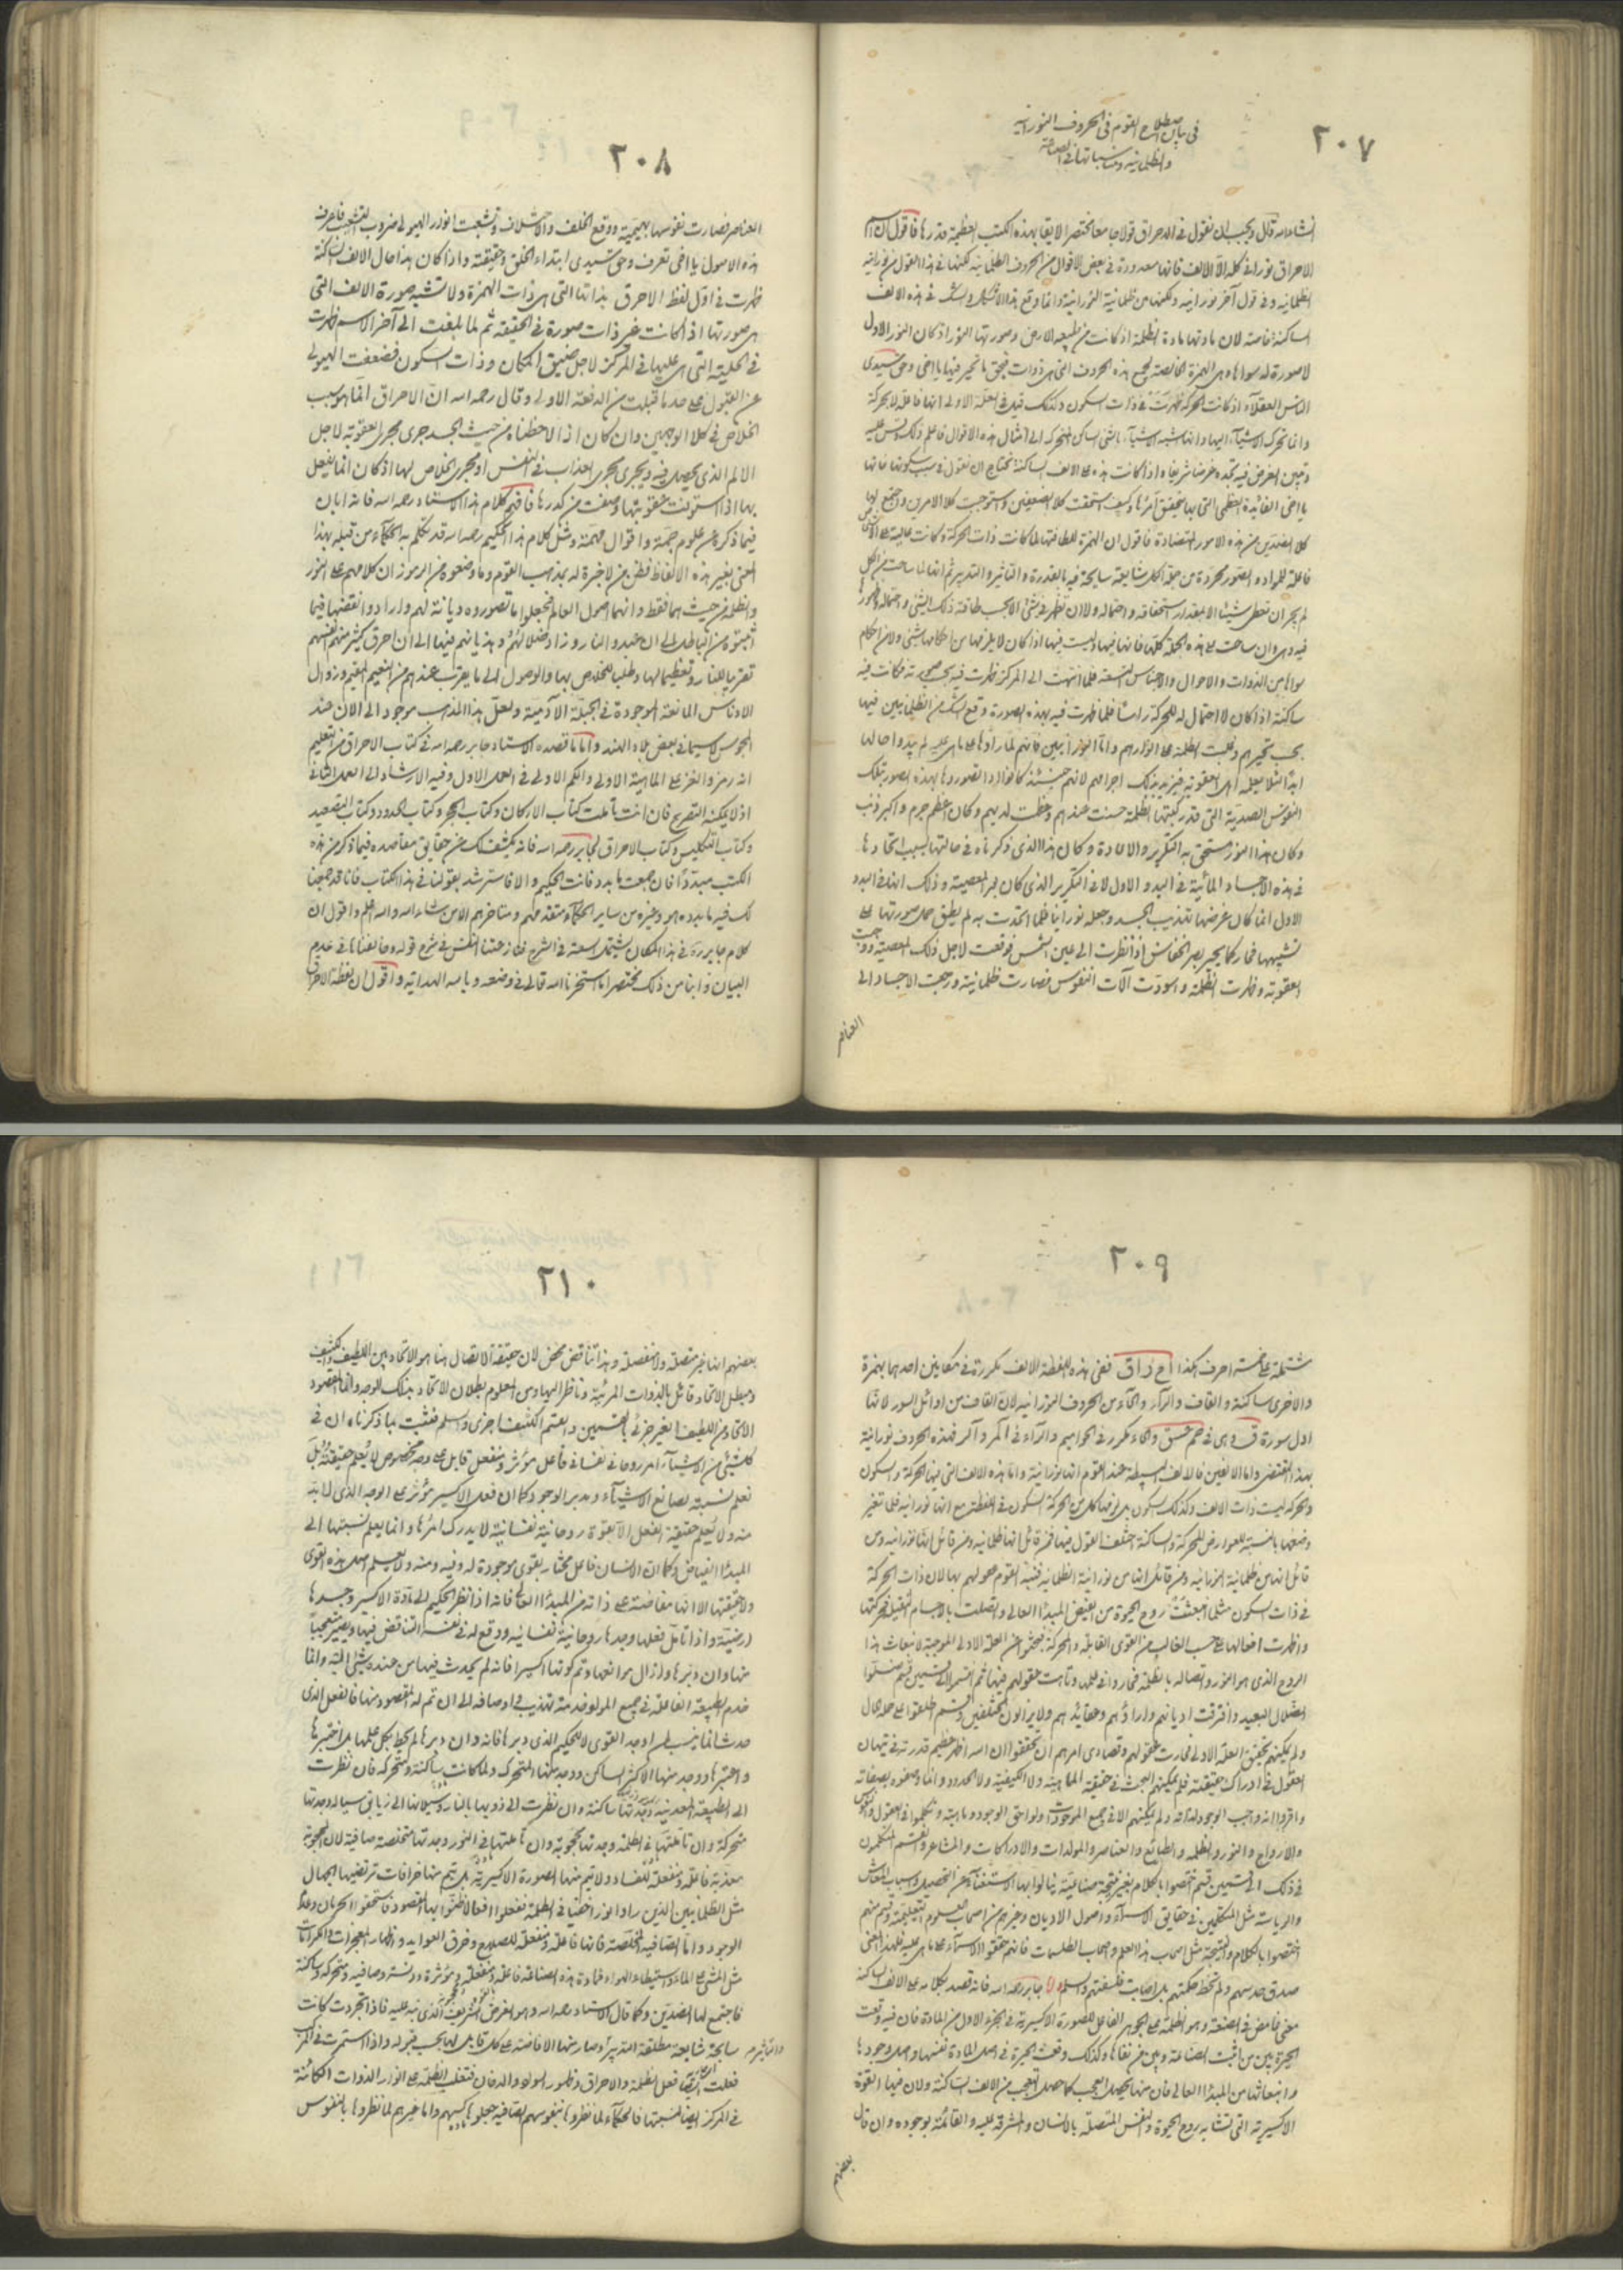 ٢٠٧
في بيان اصطلاح القوم في الحروف النورانية
والظلمانية ومناسباتها في الصناعة
انشاء الله قال ويجب ان نقول في الاحراق قولا جامعا مختصرا لايقا بهذه الكتب العظيمة قدرها فاقول ان اسم
الاحراق نوراني كله الا الالف فانها معدودة في بعض الاقوال من الحروف الظلمانية لكنها في هذا القول من نورانية
الظلمانية وفي قول آخر نورانية ولكنها من ظلمانية النورانية وانما وقع هذا الاشكال والشك في هذه الالف
الساكنة خاصة لان مادتها مادة الظلمة اذ كانت من طبيعة الارض وصورتها النور اذ كان النور الاول
لا صورة له سواها وهي الهمزة الخالصة لجميع هذه الحروف التي هي ذوات فبحق ما تحير فيها يا اخي وحق سيدي
الناس العقلاء اذ كانت الحركة ظهرت في ذات السكون وكذلك قيل في العلة الاولى انها فاعلة لا بحركة
وانما تحرك الاشياء اليها وانها اشبه الاشياء بالشي الساكن المتحرك الى امثال هذه الاقوال فاعلم ذلك وقس عليه
وتبين الغرض فيه تجده غرضا شريفا واذا كانت هذه هي الالف الساكنة نحتاج ان نقول في سبب سكونها فانها
يا اخي الفائدة العظمى التي بها يتحقق امرها وكيف استحقت كلا الضعفين واستوجبت كلا الامرين واجتمع لها
كلا الضدين من هذه الامور المتضادة فاقول ان الهمزة للطافتها لما كانت ذات الحركة وكانت عالية على الكل
فاعلة للمواد والصور مجردة من جملة الكل شايعة سابحة فيه بالقدرة والتاثير والتدبير ثم انها لما ساحت في الكل
لم يجز ان تعطي شيئا الا بمقدار استحقاقه واحتماله ولا ان تظهر في شئ الا بحسب طاقة ذلك الشي واحتماله لظهورها
فيه وهي وان ساحت في هذه الجملة كلها فانها فيها وليست فيها اذ كان لا يلزمها من احكامها شئ ولا من احكام
سواها من الذوات والاحوال والاجناس التسعة فلما انتهت الى المركز ظهرت فيه بحسب صورته فكانت فيه
ساكنة اذ كان لا احتمال له للحركة راسا فلما ظهرت فيه بهذه الصورة وقع الشك من الظلمانيين فيها
بحسب تحيرهم وغلبت الظلمة على انوارهم واما النورانيين فانهم لما راوها على ما هي عليه لم يبدوا حالها
ابدا لئلا يعلمه اهل العقوبة فيزيد بذلك اجرامهم لانهم حينئذ كانوا اذا تصوروها بهذه الصورة تلك
النفوس الصدية التي قد ركبتها الظلمة حسنت عندهم وعظمت لديهم وكان اعظم جرم واكبر ذنب
وكان هذا النور مستحق به التكرير والاعادة وكان هذا الذي ذكرناه في حالتها بسبب اتحادها
في هذه الاجساد المائية في البدو الاول لا في التكرير الذي كان بالمعصية وذلك انها في البدو
الاول انما كان غرضها تهذيب الجسد وجعله نورانيا فلما اتحدت به لم يطق حمل صورتها على
تشبيهها فحار كما يحير بصر الخفاش اذا نظرت الى عين الشمس فوقعت لاجل ذلك المعصية ووجبت
العقوبة وظهرت الظلمة واسودت آلات النفوس فصارت ظلمانية ورجعت الاجساد الى
العناصر
٢٠٨
العناصر فصارت نفوسها بهيمية ووقع الخلف والاختلاف وتشعبت انوار الهيولى ضروب التشعب فاعرف
هذه الاصول يا اخي تعرف وحق سيدي ابتداء الخلق وحقيقته واذا كان هذا حال الالف الساكنة
ظهرت في اول لفظ الاحراق بذاتها التي هي ذات الهمزة ولا تشبه صورة الالف التي
هي صورتها اذ كانت غير ذات صورة في الحقيقة ثم لما بلغت الى آخر الاسم ظهرت
في الحلية التي هي عليها في المركز لاجل ضيق المكان وذات السكون فضعفت الهيولى
عن القبول على حد ما قبلت من الدفعة الاولى وقال رحمه الله ان الاحراق انما هو سبب
الخلاص في كلا الوجهين وان كان اذا لاحظناه من حيث الجسد جرى مجرى العقوبة لاجل
الالم الذي يحصل فيه ويجري مجرى العذاب في النفس او مجرى الخلاص لها اذ كان انما يفعل
بها اذا استوفت عقوبتها وصفت من كدرها فافهم كلام هذا الاستاد رحمه الله فانه ابان
فيما ذكره عن علوم جمة واقوال مهمة ومثل كلام هذا الحكيم رحمه الله قد تكلم به الحكماء من قبله بهذا
المعنى بغير هذه الالفاظ فظن من لا خبرة له بمذهب القوم وما وضعوه من الرموز ان كلامهم على النور
والظلمة من حيث هما فقط وانهما اصول العالم فجعلوا ما تصوروه ديانة لهم وارادوا نقضها فيما
اثبتوه من الباطل الى ان عبدوا النار وزاد ضلالهم وهذيانهم فيها الى ان احرق كثير منهم انفسهم
تقربا للنار وتعظيما لها وطلبا للخلاص بها والوصول الى ما يقرب عندهم من النعيم المقيم وزوال
الادناس المانعة الموجودة في الجبلة الآدمية ولعل هذا المذهب موجود الى الآن عند
المجوس لا سيما في بعض بلاد الهند واما ما قصده الاستاد جابر رحمه الله في كتاب الاحراق من التعليم
انه رمز والغز على الماهية الاولى والكم الاول في العمل الاول وفيه الارشاد الى العمل الثاني
اذ لا يمكنه التصريح فان انت تأملت كتاب الاركان وكتاب الحجر وكتاب الحدود وكتاب التصعيد
وكتاب التكليس وكتاب الاحراق لجابر رحمه الله فانه يكشف لك عن حقايق مقاصده فيما ذكر من هذه
الكتب مبددا فان جمعت ما بدد فانت الحكيم والا فاسترشد بقولنا في هذا الكتاب فانا قد جمعنا
لك فيه ما بدده هو وغيره من ساير الحكماء متقدمهم ومتاخرهم الا من شاء الله والله اعلم واقول ان
كلام جابر ره في هذا المكان يحتمل سعة في الشرح فنازعتنا النفس في شرح قوله وخالفناها في عدم
البيان واتينا من ذلك مختصرا ما استخرنا الله تعالى في وضعه وبالله الهداية واقول ان لفظة الاحراق
٢٠٩
مشتملة على خمسة احرف هكذا ا ح ر ا ق ففي هذه اللفظة الالف مكررة في مكانين احدهما بهمزة
والاخرى ساكنة والقاف والراء والحاء من الحروف النورانية لان القاف من اوائل السور لانها
اول سورة ق وهي في حم عسق والحاء مكرر في الحواميم والراء في المر والر فهذه الحروف نورانية
بهذا المقتضى واما الالفين فالالف البسيطة عند القوم انها نورانية واما هذه الالف التي فيها الحركة والسكون
والحركة ليست ذات الالف وكذلك السكون بل لزمها كل من الحركة والسكون في اللفظ مع انها نورانية فلما تغير
وضعها بالنسبة للعوارض المتحركة والساكنة اختلف القول فيها فمن قائل انها ظلمانية ومن قائل انها نورانية ومن
قائل انها من ظلمانية النورانية ومن قائل انها من نورانية الظلمانية فشبه القوم اصولهم بها لان ذات الحركة
في ذات السكون مثلها انبعثت روح الحيوة من الفيض المبدا العالي واتصلت بالاجسام الثقيلة فحركتها
واظهرت افعالها على حسب القالب من القوى القابلة والحركة فبحثوا عن العلة الاولى الموجبة لانبعاث هذا
الروح الذي هو النور واتصاله بالظلمة فحاروا في عللها وتاهت عقولهم فيها ثم انقسموا الى قسمين قسم ضلوا
الضلال البعيد وافترقت اديانهم واراؤهم وعقائدهم ولا يزالون مختلفين وقسم اطلعوا على جلاء الحال
ولم يمكنهم تحقيق العلة الاولى فحارت عقولهم وقصارى امرهم ان تحققوا ان الله اظهر عظيم قدرته في تيهان
العقول في ادراك حقيقته فلم يمكنهم البحث في حقيقة الماهية ولا الكيفية ولا الحدود وانما وصفوه بصفاته
واقروا انه واجب الوجود لذاته ولم يمكنهم الا في جميع الموجودات ولواحق الوجود وماهيته وتكلموا في العقول والنفوس
والارواح والنور والظلمة والطبائع والعناصر والمولدات والادراكات والمشاعر وانقسم المتكلمون
في ذلك الى قسمين قسم اختصوا بالكلام بغير نتيجة صناعية ينالوا بها الاستغناء عن التحصيل وسباب المعاش
والرياسة مثل المتكلمين في حقايق الاسماء واصول الاديان وغيرهم من اصحاب العلوم التعليمية وقسم منهم
اختصوا بالكلام والنتيجة مثل اصحاب هذا العلم واصحاب الطلسمات فانهم حققوا الاسماء على ما هي عليه فلهذا المعنى
صدق حدسهم ولم تخط حكمتهم بل اصابت فلسفتهم واسلم اما جابر رحمه الله فانه قصد بكلامه على الالف الساكنة
معنى غامض في الصنعة وهو الظلمة على الجوهر الفاعل للصورة الاكسيرية في الجزء الاول من المادة فان فيه وقعت
الحيرة بين من اثبت الصناعة وبين من نفاها وكذلك وقعت الحيرة في اصل المادة نفسها واصل وجودها
وانبعاثها من المبدا العالي فان منها يحصل العجب كما حصل التعجب من الالف الساكنة ولان فيها القوة
الاكسيرية التي تشابه روح الحيوة والنفس المتصلة بالانسان والمشرقة عليه والقائمة بوجوده وان قال
بعضهم
٢١٠
بعضهم انها غير متصلة ولا منفصلة وهذا تناقض محض لان حقيقة الاتصال هنا هو الاتحاد بين اللطيف والكثيف
ومبطل الاتحاد قائل بالذوات المرئية وناظر اليها ومن المعلوم بطلان الاتحاد بذلك الوجه وانما المقصود
الاتحاد من اللطيف بغير جزئي بالجسمين والقسم الكثيف اجزى وسلم فثبت بما ذكرناه ان في
كل شئ من الاشياء امر روحاني نفساني فاعل مؤثر ومنفعل قابل على وجه مخصوص لا يعلم حقيقته بل
نعلم نسبته لصانع الاشياء ومدبر الوجود وكما ان فعل الاكسير مؤثر على الوجه الذي لا بد
منه ولا يعلم حقيقة الفعل الا بقوة روحانية نفسانية لا يدرك امرها وانما يعلم نسبتها الى
المبدا الفياض وكما ان الانسان فاعل مختار بقوى موجودة له وفيه ومنه ولا يعلم اصل هذه القوى
ولا حقيقتها الا انها مفاضة على ذاته من المبدا العالي فانه اذا نظر الحكيم الى مادة الاكسير وجدها
ارضية واذا تأمل فعلها وجدها روحانية نفسانية ووقع له في نفسه التناقض فيها ويصير متعجبا
منها وان دبرها وازال موانعها وتم كونها اكسيرا فانه لم يحدث فيها من عنده شئ البتة وانما
خدم الطبيعة الفاعلة في جميع المولود خدمة تهذيب في اوصافه الى ان تم له المقصود منها فالفعل الذي
حدث انما ينسب لمن اوجد القوى لا للحكيم الذي دبرها فانه وان دبرها لم يحط بكل علمها بل اختبرها
واعتبرها ووجد منها الاكثر الساكن ووجد منها المتحرك ولما كانت ساكنة ومتحركة فان نظرت
الى الطبيعة المعدنية وجدتها ساكنة وان نظرت الى ذوبها بالنار وسيلانها الى زيابق سيالة وجدتها
متحركة وان تأملتها في الظلمة وجدتها محجوبة وان تأملتها في النور وجدتها متخلصة صافية لان المحجوبة
معذبة فاعلة ومنفعلة للفساد ولا يتم منها الصورة الاكسيرية بل يتم منها خرافات ترتضيها الجهال
مثل الظلمانيين الذين راوا نورا خفيا في الظلمة ففعلوا افعالا ظنوا بها المقصود فاستحقوا الحرمان وعدم
الوجود واما الصافية المتخلصة فانها فاعلة ومنفعلة للصلاح وخرق العوايد واظهار المعجزات والكرامات
مثل المشي على الماء واستيطاء الهواء فمادة هذه الصناعة فاعلة ومنفعلة ومؤثرة ودنسة وصافية ومتحركة وساكنة
فاجتمع لها الضدين وكما قال الاستاد رحمه الله وهو الغرض الشريف الذي نبه عليه فاذا تجردت كانت
سابحة شايعة مطلقة التدبير والتاثير وصار منها الافاضة على كل قابل لها بحسب قبوله واذا استمرت في المركز
فعلت ايضا فعل الظلمة والاحراق وظهور السواد والدخان فتغلب الظلمة على انوار الذوات الكائنة
في المركز ايضا لنسبتها فالحكماء لما نظروها بنفوسهم الصافية جعلوها اكسيرهم واما غيرهم لما نظروها بالنفوس